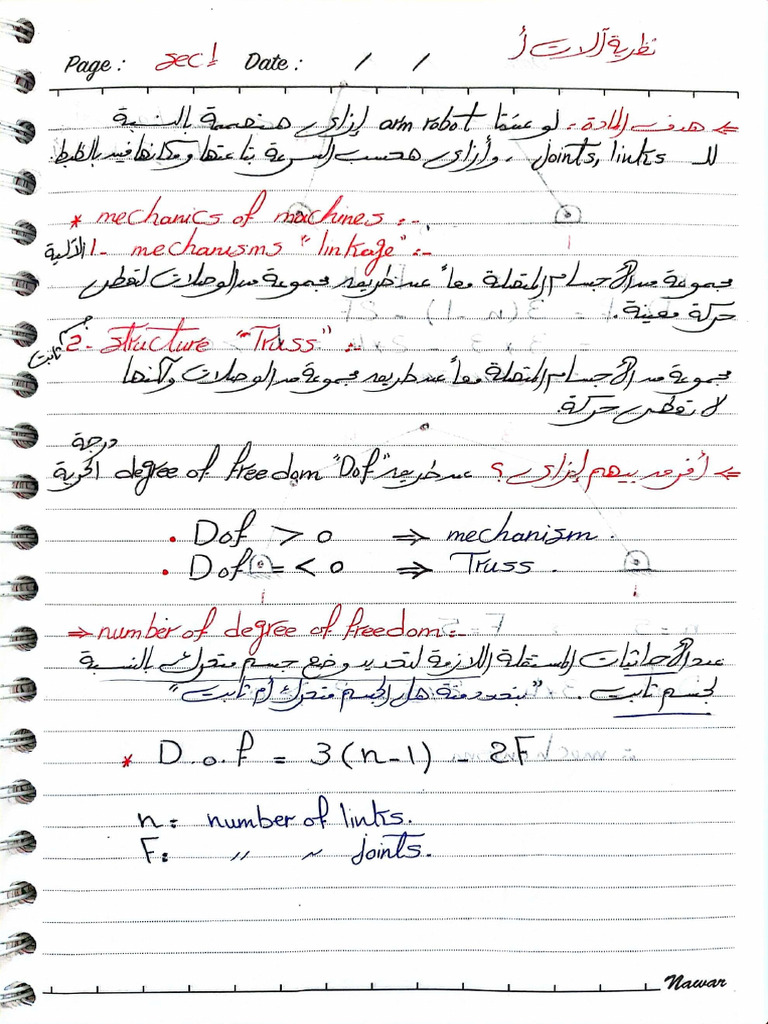 نظرية آلات أ
Page : sec 1 Date : / /
⇐ هدف المادة :- لو عندنا arm robot إزاى هنصممه بالنسبة
للـ Joints, links ، وإزاى هنحسب السرعة بتاعتها ومكانها فين بالظبط.
* mechanics of machines :-
1- mechanisms "linkage" :- الآلية
مجموعة من الأجسام المتصلة معاً عن طريق مجموعة من الوصلات لتعطى
حركة معينة.
2- Structure "Truss" :- جسم ثابت
مجموعة من الأجسام المتصلة معاً عن طريق مجموعة من الوصلات ولكنها
لا تعطى حركة.
⇐ أفرق بينهم إزاى ؟ عن طريق "Dof" degree of freedom درجة الحرية
• Dof > 0 ⇒ mechanism .
• Dof = < 0 ⇒ Truss .
⇒ number of degree of freedom :-
عدد الإحداثيات المستقلة اللازمة لتحديد وضع جسم متحرك بالنسبة
لجسم ثابت . "بنحدد منه هل الجسم متحرك أم ثابت"
* D.o.f = 3(n-1) - 2F
n = number of links.
F: // ~ joints.
Nawar